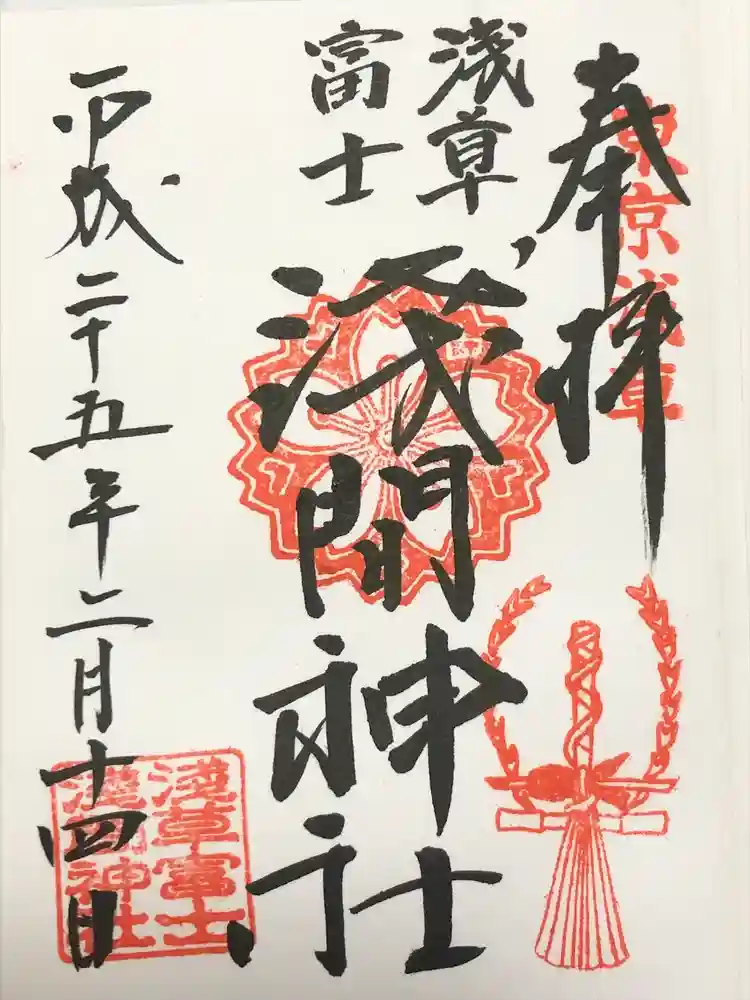 奉拝
東京浅草
浅草
富士
浅間神社
平成二十五年二月十四日
淺草富士
淺間神社